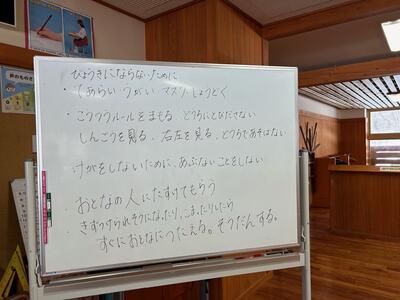 びょうきにならないために
・てあらい うがい マスク しょうどく
・こうつうルールをまもる、どうろにとびださない
しんごうを見る、右左を見る、どうろであそばない
けがをしないために、あぶないことをしない
・おとなの人にたすけてもらう
・きずつけられそうになったり、こまったりしたら
すぐにおとなにつたえる。そうだんする。